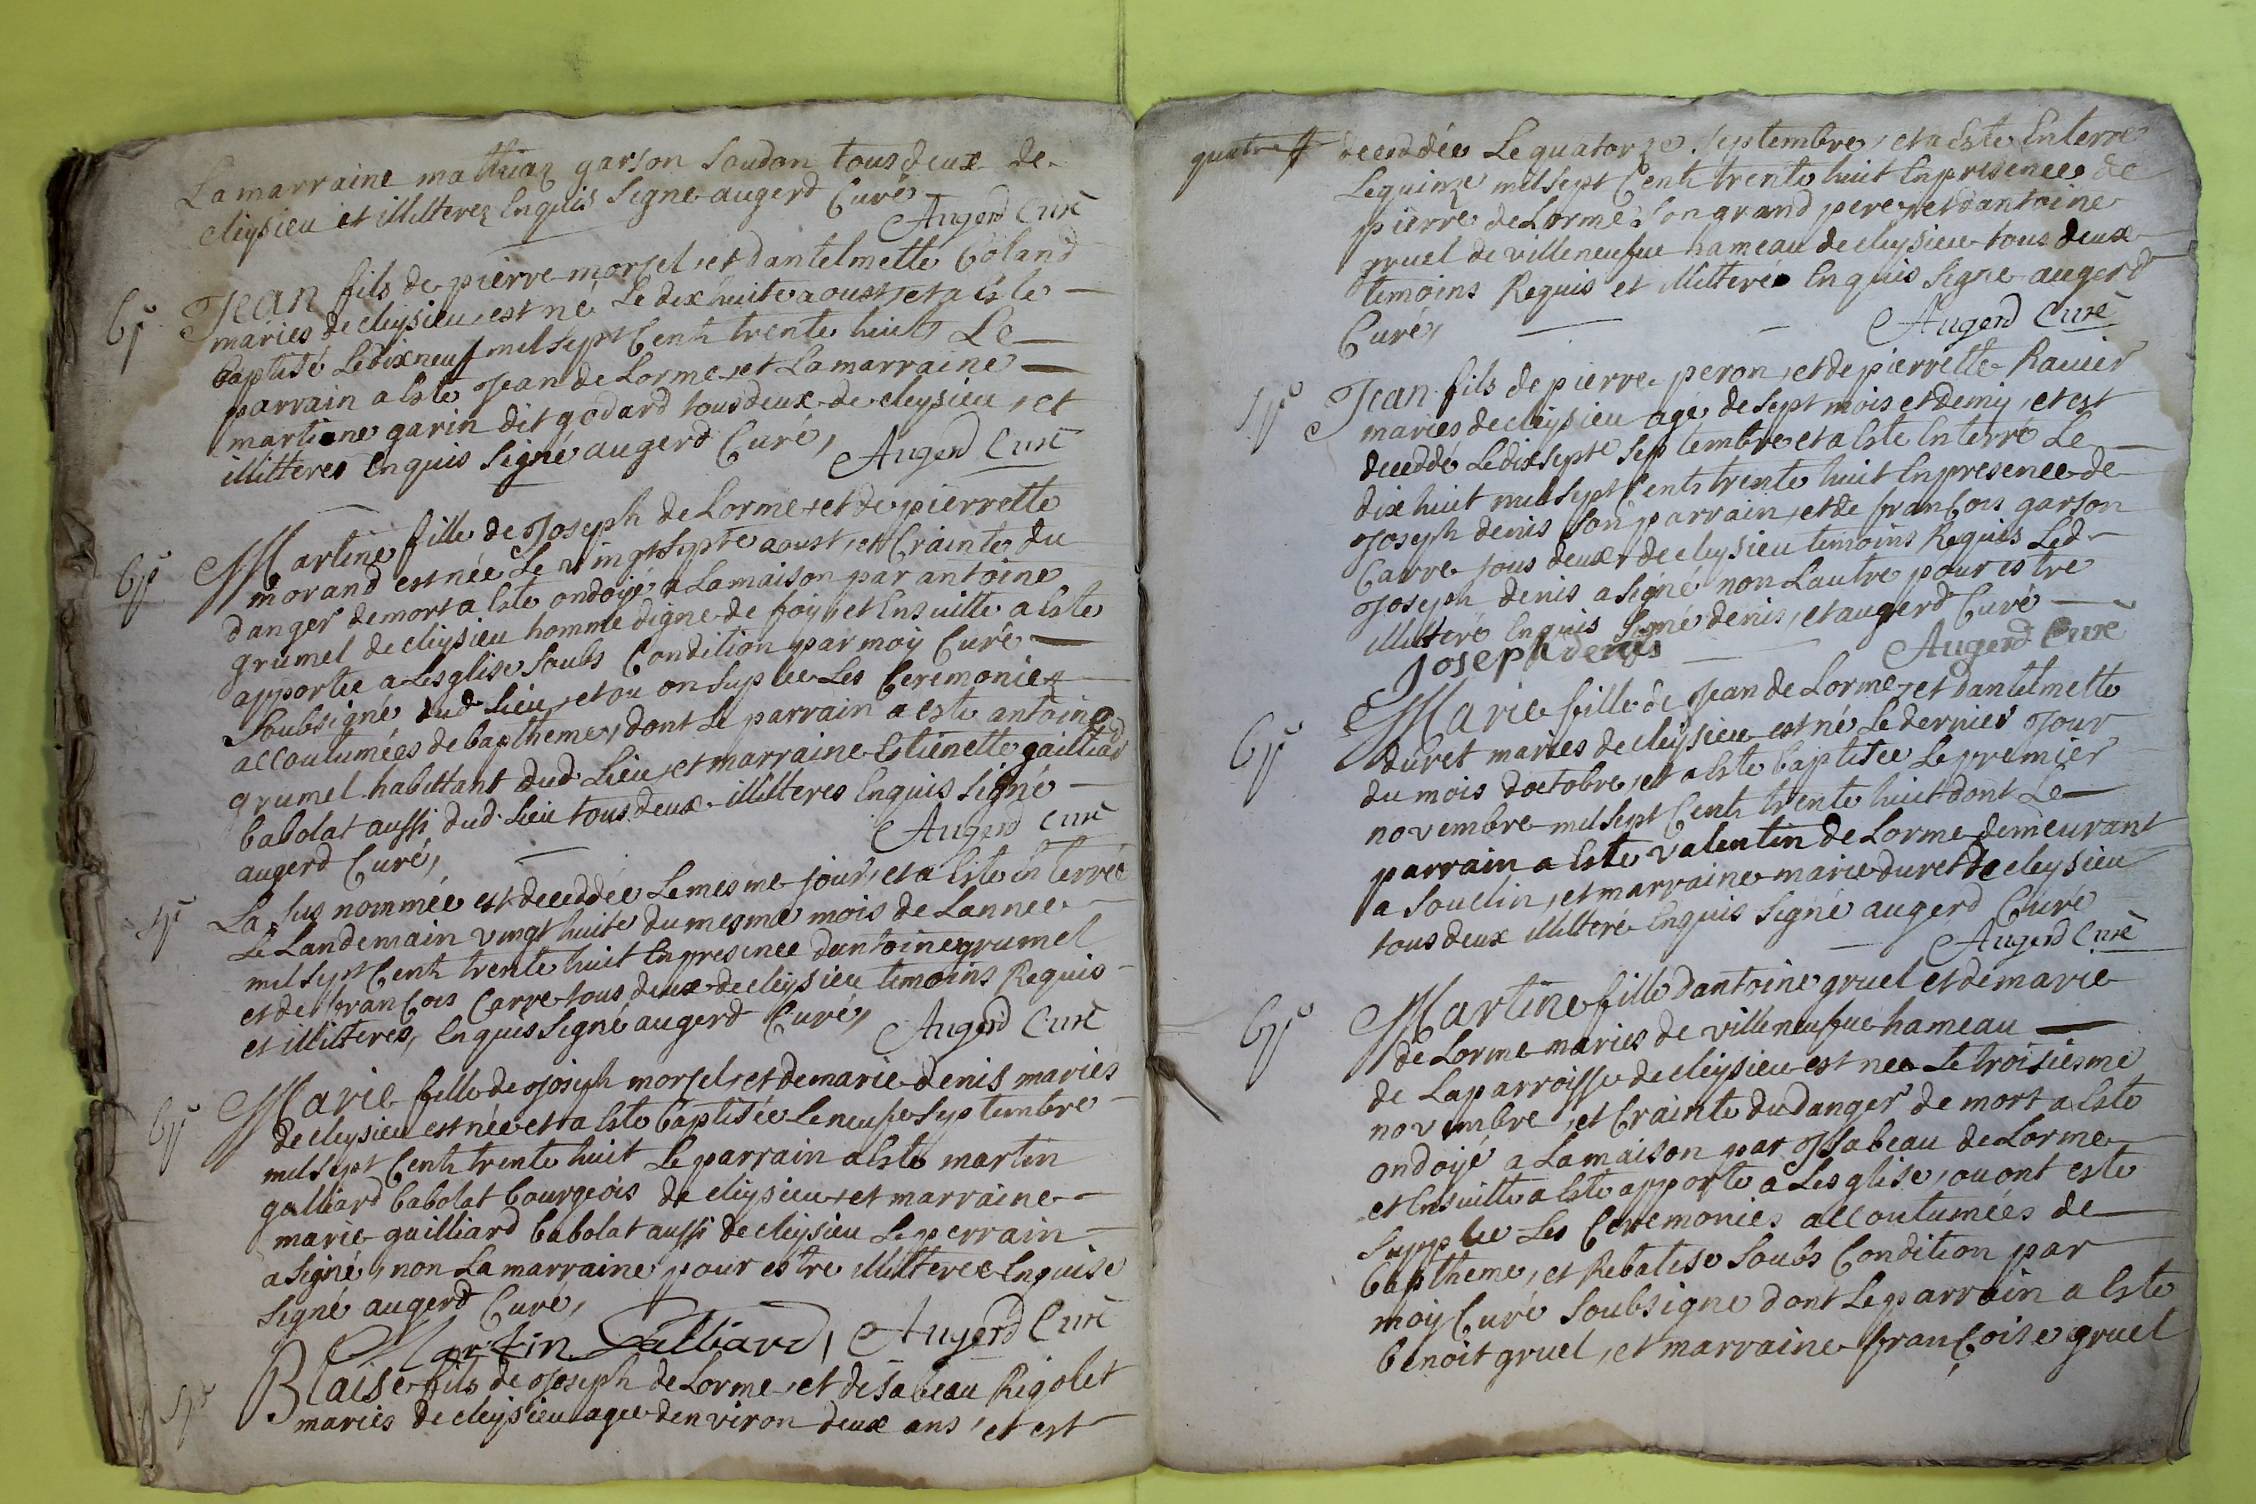 La marraine mathiaz garson soudan tous deux de
cleysieu et illitterez Enquis Signe augerd Curé
Augerd Curé
bp
Jean fils de pierre morsel, et dantelmette Coland
mariés de cleysieu, est né Le dix huite aoust, et a Este
baptisé Le dix neuf mil sept Cents trente huit, Le
parrain a Este Jean de Lorme, et La marraine
martiene garin dit godard tous deux de cleysieu, et
illitteres Enquis Signé augerd Curé,
Augerd Curé
bp
Martine fille de Joseph de Lorme, et de pierrette
morand est née Le vingt sypte aoust, et Crainte du
danger de mort a Este ondoyé a La maison par antoine
grumel de cleysieu homme digne de foy, et Ensuitte a Este
apportée a Lesglise Soubs Condition par moy Curé
Soubsigné dud. Lieu, et ou on suplée Les Ceremoniez
accoutumées de baptheme, dont Le parrain a este antoine
grumel habittant dud. Lieu, et marraine Estienette gailliard
babolat aussi dud. Lieu tous deux illitteres Enquis Signé
augerd Curé,
Augerd Curé
sp
La sus nommée est deceddée Le mesme jour, et a Este Enterré
Le Landemain vingt huite du mesme mois de Lannee
mil sept Cents trente huit En presence dantoine grumel
et de françois Carre tous deux de cleysieu temoins Requis
et illitteres, Enquis Signé augerd Curé,
Augerd Curé
bp
Marie fille de Joseph morsel, et de marie denis mariés
de cleysieu est née et a Este baptisée Le neufve Septembre
mil sept Cents trente huit Le parrain a Este martin
galliard babolat bourgeois de cleysieu, et marraine
marie gailliard babolat aussi de cleysieu Le perrain
a Signé, non La marraine pour estre illitteree Enquise
Signé augerd Curé,
Martin Galliard, Augerd Curé
sp
Blaise fils de Joseph de Lorme, et disabeau Rigolet
mariés de cleysieu agee denviron deux ans, et est
quatre
deceddée Le quatorze Septembre, et a Este Enterre
Le quinze mil sept Cents trente huit En presence de
pierre de Lorme son grand pere, et dantoine
gruel de villeneufve hameau de cleysieu tous deux
temoins Requis et illitteres Enquis Signe augerd
Curé,
Augerd Curé
sp
Jean fils de pierre peron, et de pierrette Ravier
mariés de cleysieu agé de sept mois et demy, et est
deceddé Le dix septe Septembre et a Este Enterré Le
dix huit mil sept Cents trente huit En presence de
Joseph denis son parrain, et de françois garson
Carre tous deux de cleysieu temoins Requis Led.
Joseph denis a Signé non Lautre pour estre
illitteré Enquis Signé denis, et augerd Curé
Joseph denis
Augerd Curé
bp
Marie fille de Jean de Lorme, et dantelmette
duret mariés de cleysieu est né Le dernier Jour
du mois doctobre, et a Este baptisée Le premier
novembre mil sept Cents trente huit dont Le
parrain a Este valentin de Lorme demeurant
a Souclin, et marraine marie duret de cleysieu
tous deux illitteré Enquis Signé augerd Curé
Augerd Curé
bp
Martine fille dantoine gruel et de marie
de Lorme mariés de villeneufve hameau
de La parroisse de cleysieu est nee Le troisiesme
novembre, et Crainte du danger de mort a Este
ondoyé a La maison par Isabeau de Lorme
et Ensuitte a Este apporte a Lesglise, ou ont este
supplee Les Ceremonies accoutumées de
baptheme, et Rebatise Soubs Condition par
moy Curé Soubsigne dont Le parrain a Este
benoit gruel, et marraine françoise gruel